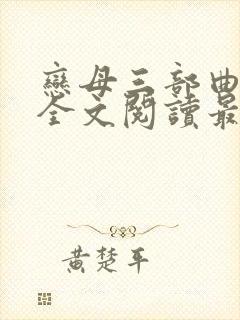 戀母三部曲
全文閱讀最
黃楚平